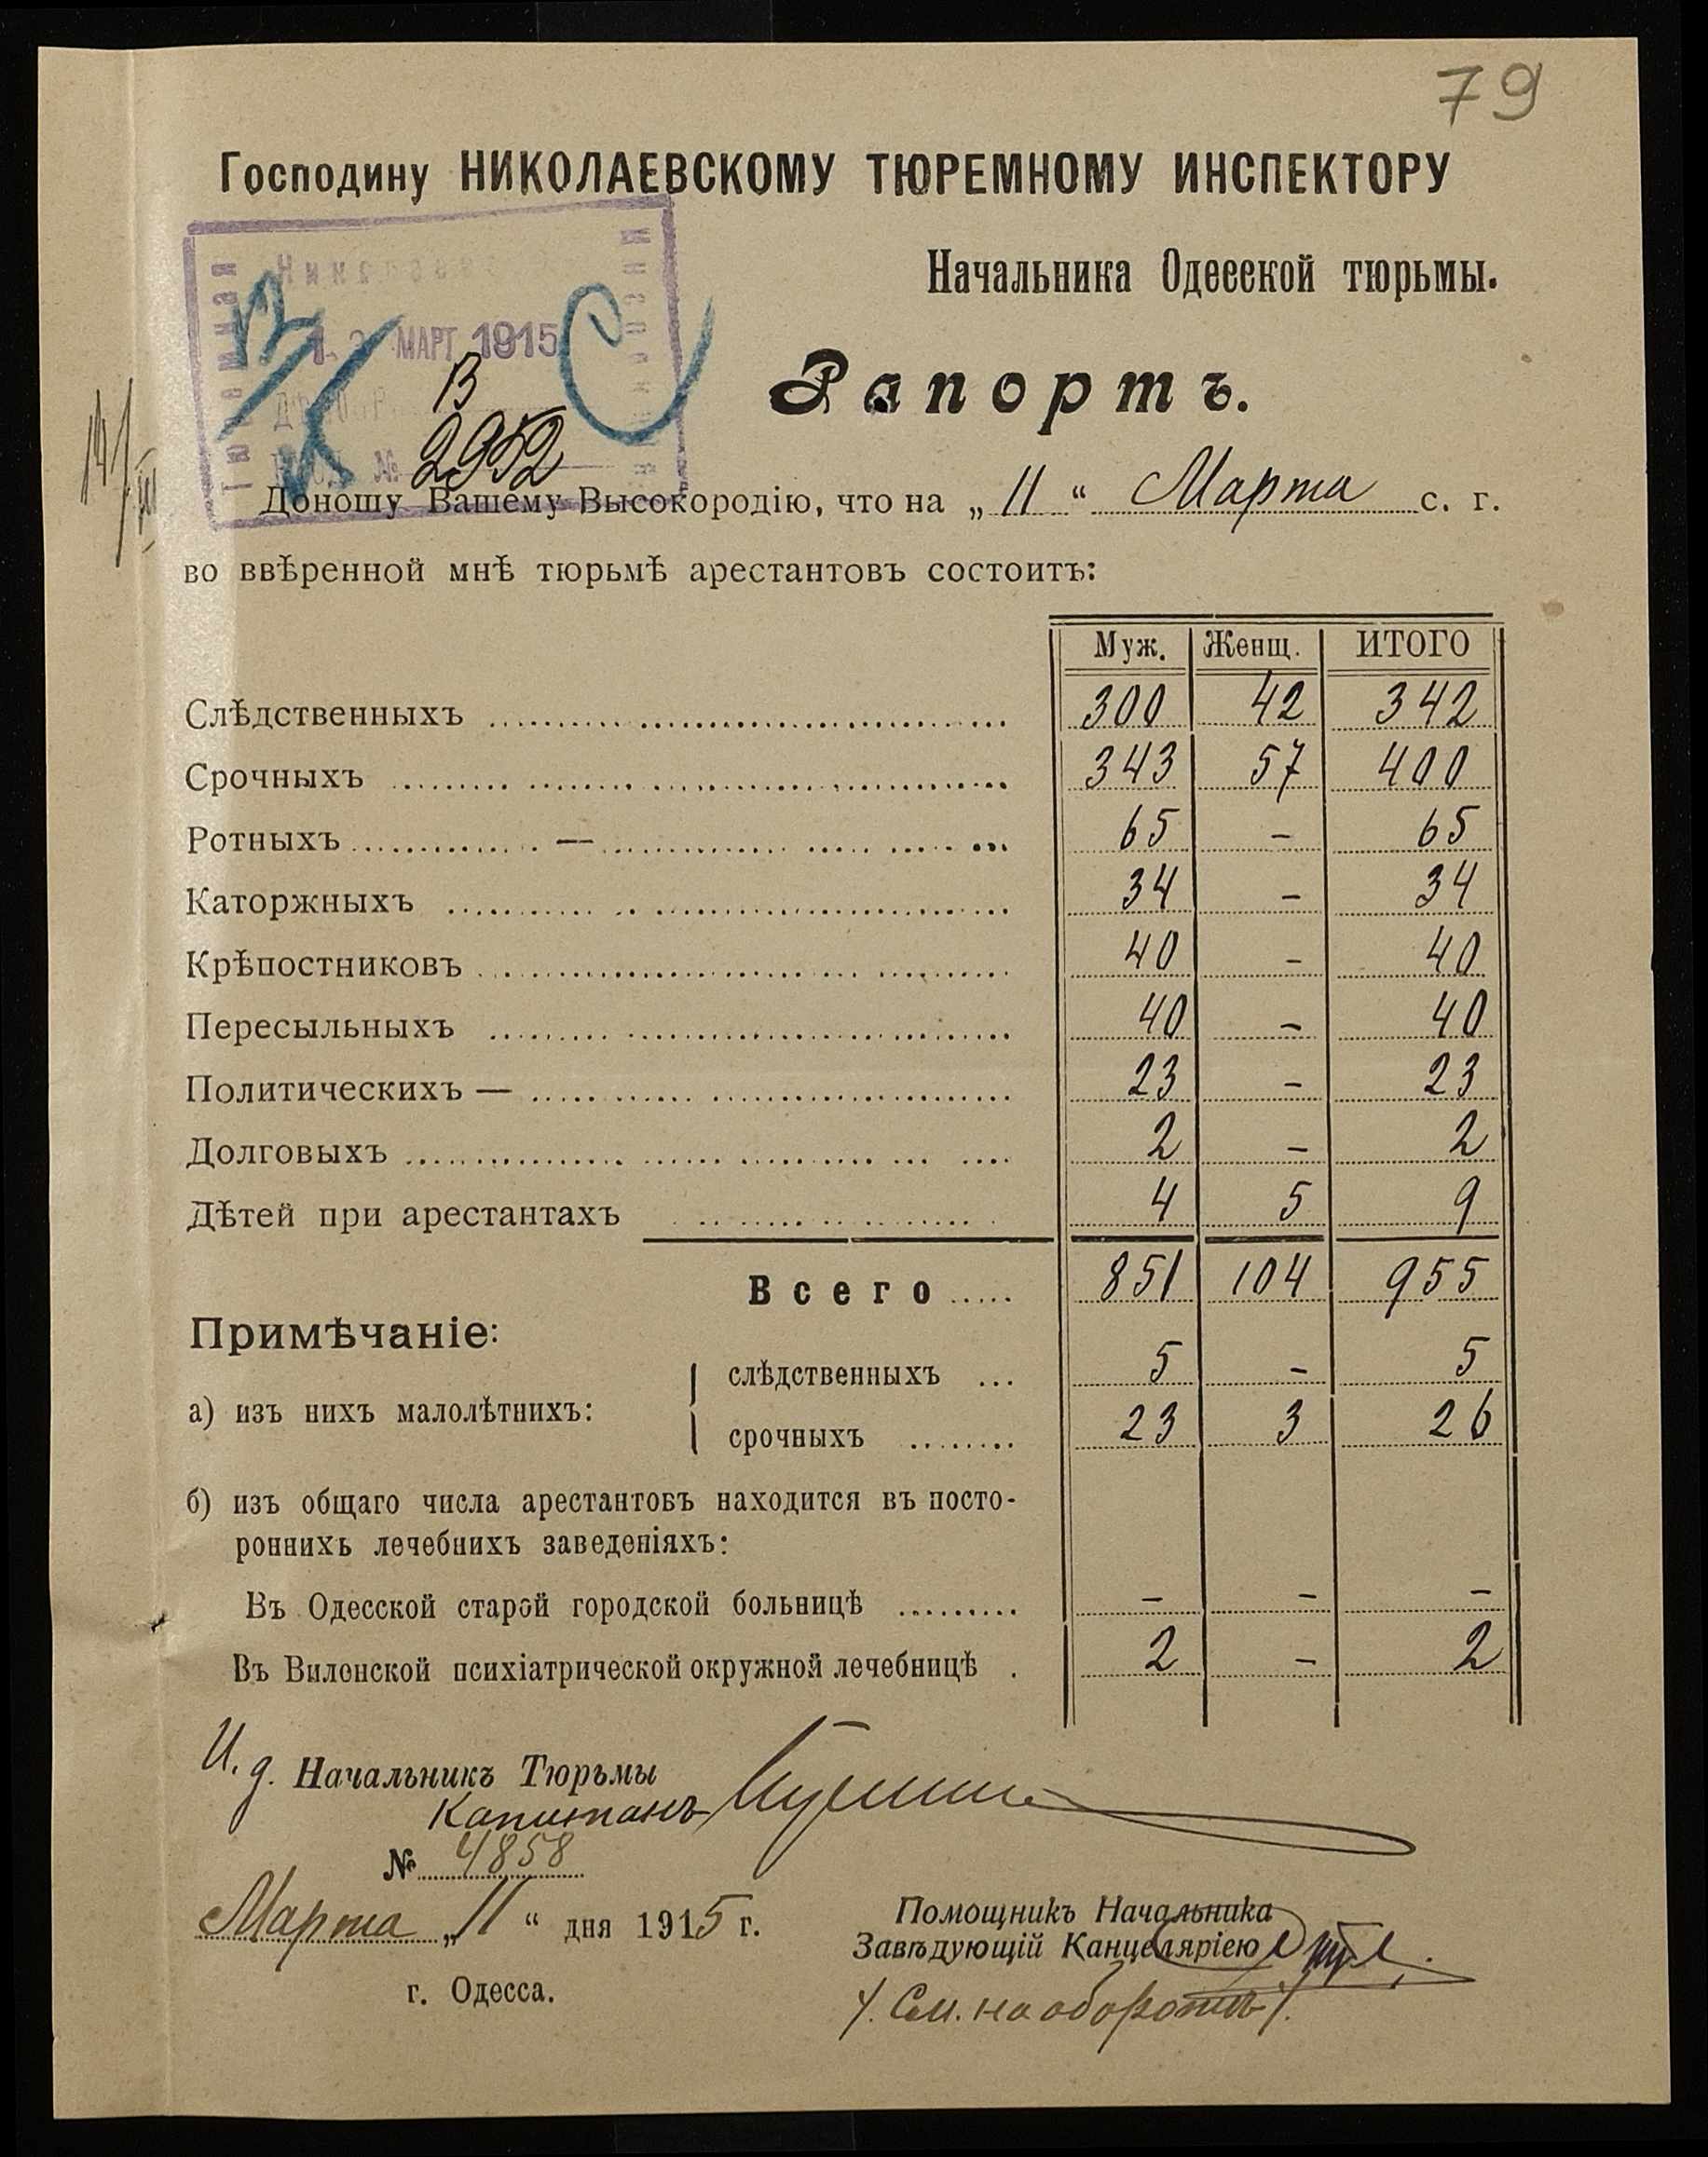 79
Господину НИКОЛАЕВСКОМУ ТЮРЕМНОМУ ИНСПЕКТОРУ
Начальника Одесской тюрьмы.
МАРТ 1915
Рапортъ.
В
№ 2952
Доношу Вашему Высокородію, что на „11“ Марта с. г.
во ввѣренной мнѣ тюрьмѣ арестантовъ состоитъ:
Муж. Женщ. ИТОГО
Слѣдственныхъ 300 42 342
Срочныхъ 343 57 400
Ротныхъ — 65 - 65
Каторжныхъ 34 - 34
Крѣпостниковъ 40 - 40
Пересыльныхъ 40 - 40
Политическихъ — 23 - 23
Долговыхъ 2 - 2
Дѣтей при арестантахъ 4 5 9
Всего 851 104 955
Примѣчаніе:
а) изъ нихъ малолѣтнихъ:
слѣдственныхъ 5 - 5
срочныхъ 23 3 26
б) изъ общаго числа арестантовъ находится въ посто-
роннихь лечебнихъ заведеніяхъ:
Въ Одесской старой городской больницѣ - - -
Въ Виленской психіатрической окружной лечебницѣ 2 - 2
И. д. Начальникъ Тюрьмы
Капитанъ
№ 4858
Марта „11“ дня 1915 г.
г. Одесса.
Помощникъ Начальника
Завѣдующій Канцеляріею
/. См. на оборотѣ /.